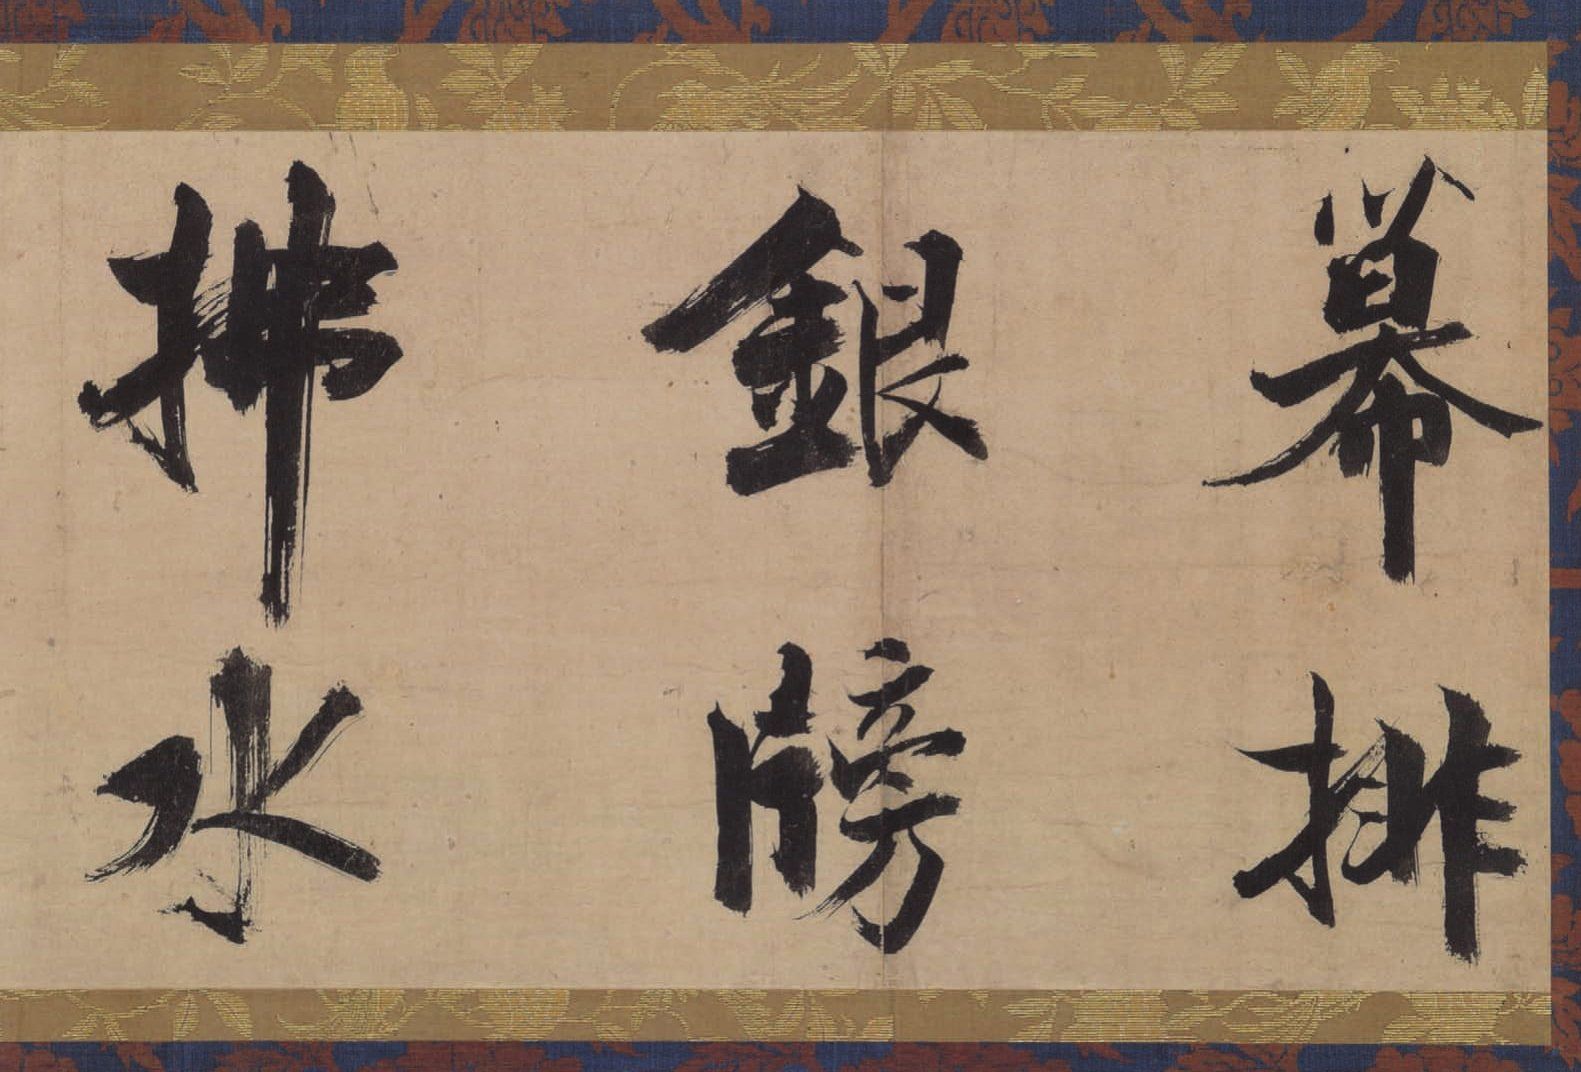 幕排
銀牓
拂水